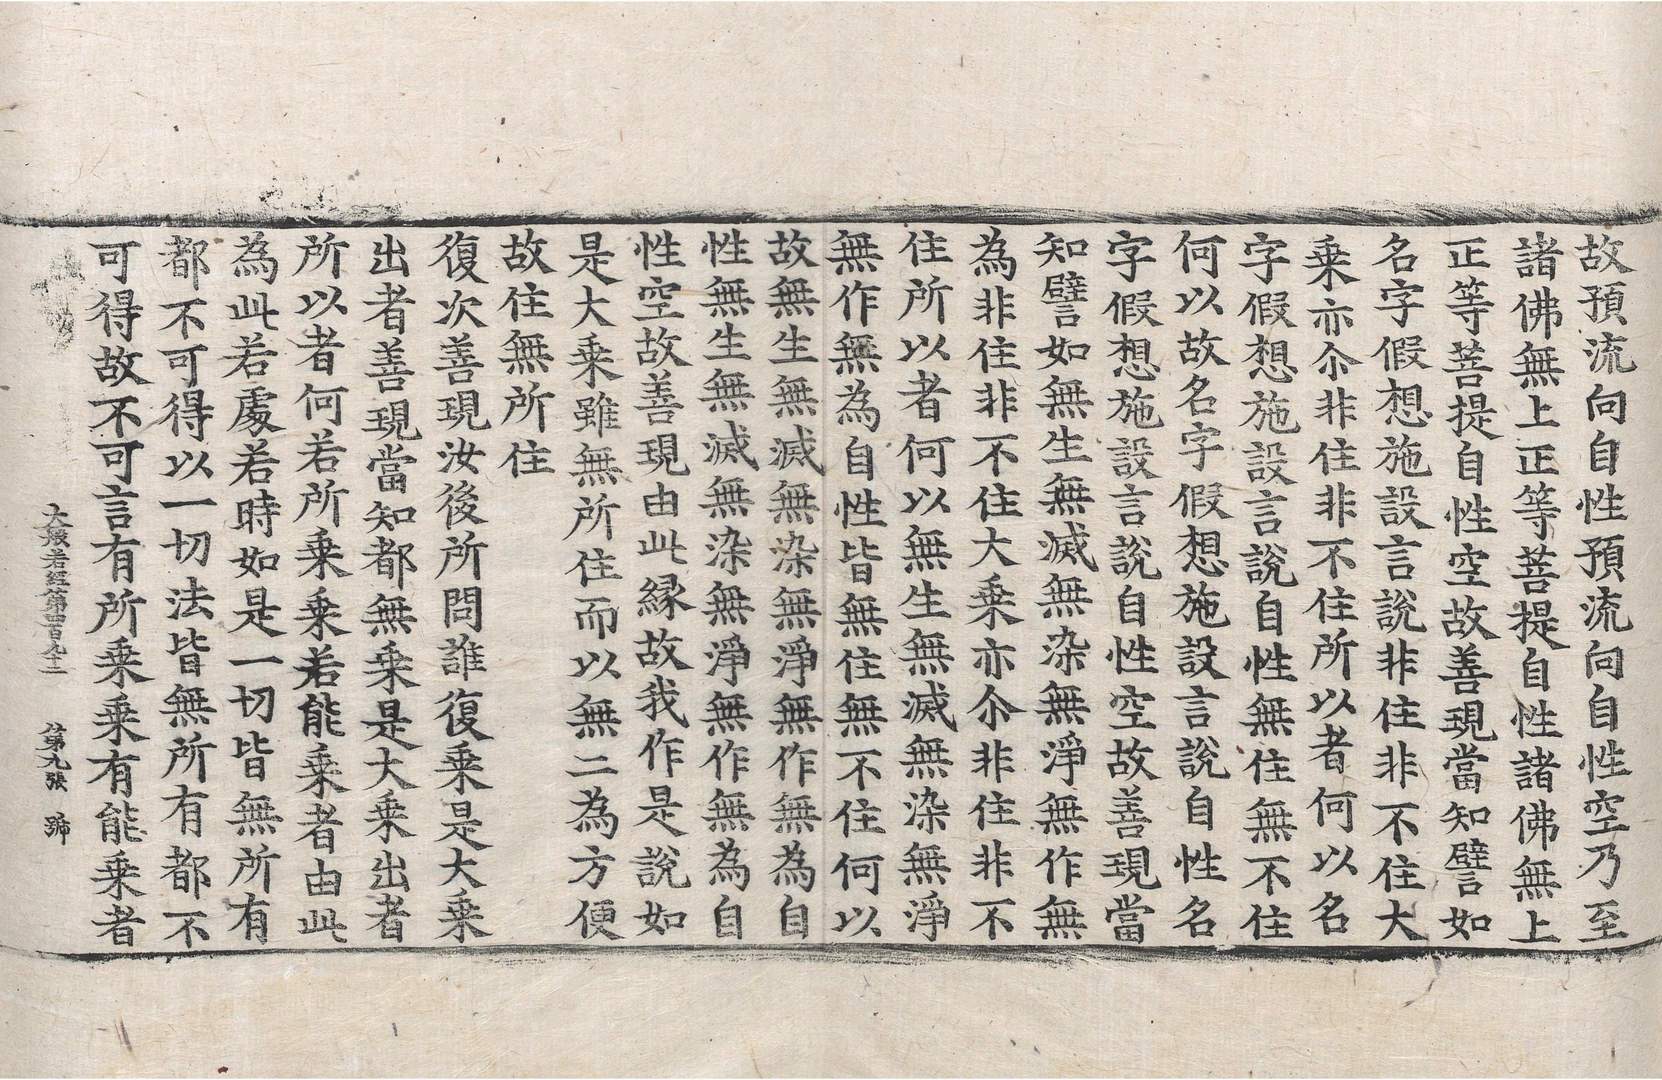 故預流向自性預流向自性空乃至
諸佛無上正等菩提自性諸佛無上
正等菩提自性空故善現當知譬如
名字假想施設言說非住非不住大
乗亦尒非住非不住所以者何以名
字假想施設言說自性無住無不住
何以故名字假想施設言說自性名
字假想施設言說自性空故善現當
知譬如無生無滅無染無淨無作無
為非住非不住大乗亦尒非住非不
住所以者何以無生無滅無染無淨
無作無為自性皆無住無不住何以
故無生無滅無染無淨無作無為自
性無生無滅無染無淨無作無為自
性空故善現由此緣故我作是說如
是大乗雖無所住而以無二為方便
故住無所住
復次善現汝後所問誰復乗是大乗
出者善現當知都無乗是大乗出者
所以者何若所乗乗若能乗者由此
為此若處若時如是一切皆無所有
都不可得以一切法皆無所有都不
可得故不可言有所乗乗有能乗者
大般若經第四百九十二 第九張 号